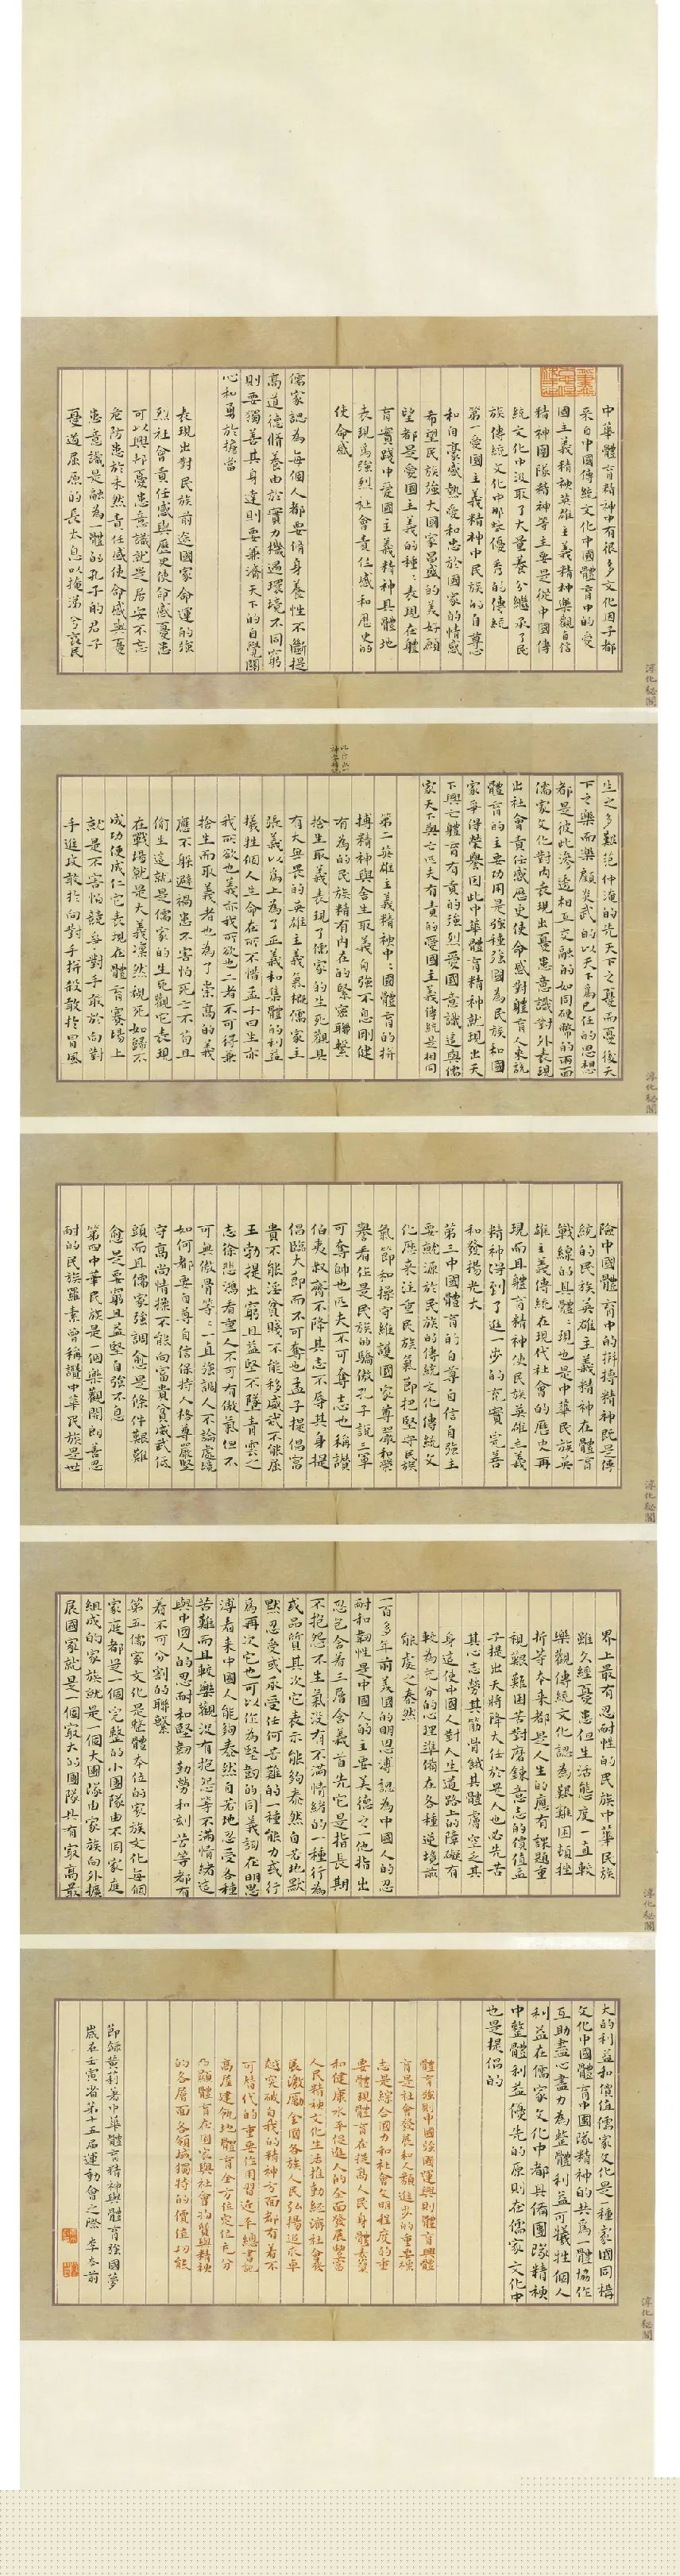 中華體育精神中有很多文化因子都
來自中國傳統文化中國體育中的愛
國主義精神英雄主義精神樂觀自信
精神團隊精神等主要是從中國傳
統文化中汲取了大量養分繼承了民
族傳統文化中那些優秀的傳統
第一愛國主義精神中民族的自尊心
和自豪感熱愛和忠於國家的情感
希望民族強大國家昌盛的美好願
望都是愛國主義的種種表現在體
育實踐中愛國主義精神具體地
表現為強烈社會責任感和歷史的
使命感
儒家認為每個人都要脩身養性不斷提
高道德脩養由於實力機遇環境不同窮
則要獨善其身達則要兼濟天下的自覺關
心和勇於擔當
表現出對民族前途國家命運的強
烈社會責任感與歷史使命感憂患
可以興邦憂患意識就是居安不忘
危防患於未然責任感使命感與憂
患意識是融為一體的孔子的君子
憂道屈原的長太息以掩涕兮哀民
生之多艱范仲淹的先天下之憂而憂後天
下之樂而樂顧炎武的以天下為己任的思想
都是彼此滲透相互交融的如同硬幣的兩面
儒家文化對內表現出憂患意識對外表現
出社會責任感歷史使命感對體育人來說
體育的主要功用是強種強國為民族和國
家爭得榮譽因此中華體育精神就現出天
下興亡體育有責的強烈愛國意識這與儒
家天下興亡匹夫有責的愛國主義傳統是相同
第二英雄主義精神中國體育的拚
搏精神與舍生取義自強不息剛健
有為的民族精有內在的緊密聯繫
捨生取義表現了儒家的生死觀具
有大無畏的英雄主義氣概儒家主
張義以為上為了正義和集體的利益
犧牲個人生命在所不惜孟子曰生亦
我所欲也義亦我所欲也二者不可得兼
捨生而取義者也為了崇高的義
應不躲避禍患不害怕死亡不苟且
偷生這就是儒家的生死觀它表現
在戰場就是大義凜然視死如歸不
成功便成仁它表現在體育賽場上
就是不害怕競爭對手敢於向對
手進攻敢於向對手拚殺敢於冒風
險中國體育中的拚搏精神既是傳
統的民族英雄主義精神在體育
戰線的具體體現也是中華民族英
雄主義傳統在現代社會的歷史再
現而且體育精神使民族英雄主義
精神得到了進一步的充實完善
和發揚光大
第三中國體育的自尊自信自強主
要觥源於民族的傳統文化傳統文
化歷來注重民族氣節把堅守民族
氣節和操守維護國家尊嚴和榮
譽看作是民族的驕傲孔子說三軍
可奪帥也匹夫不可奪志也稱讚
伯夷叔齊不降其志不辱其身提
倡臨大節而不可奪也孟子提倡富
貴不能淫貧賤不能移威武不能屈
王勃提出窮且益堅不墜青雲之
志徐悲鴻看重人不可有傲氣但不
可無傲骨等等一直強調人不論處境
如何都要自尊自信保持人格尊嚴堅
守高尚情操不能向富貴貧威武低
頭而且儒家強調愈是條件艱難
愈是要窮且益堅自強不息
第四中華民族是一個樂觀開朗善忍
耐的民族羅素曾稱讚中華民族是世
界上最有忍耐性的民族中華民族
雖久經憂患但生活態度一直較
樂觀傳統文化認為艱難困頓挫
折等本來都是人生的應有課題重
視艱難困苦對磨鍊意志的價值孟
子提出天將降大任於是人也必先苦
其心志勞其筋骨餓其體膚空乏其
身這使中國人對人生道路上的障礙有
較為充分的心理準備在各種逆境前
能處之泰然
一百多年前美國的明恩溥認為中國人的忍
耐和韌性是中國人的主要美德之一他指出
忍包含着三層含義首先它是指長期
不抱怨不生氣沒有不滿情緒的一種行為
或品質其次它表示能夠泰然自若地默
默忍受或承受任何苦難的一種能力或行
為再次它也可以作為堅韌的同義詞在明恩
溥看來中國人能夠泰然自若地忍受各種
苦難而且較樂觀沒有抱怨等不滿情緒這
與中國人的忍耐和堅韌勤勞和刻苦等都有
着不可分割的聯繫
第五儒家文化是整體本位的家族文化每個
家庭都是一個完整的小團隊由不同家庭
組成的家族就是一個大團隊由家族向外擴
展國家就是一個最大的團隊具有家高最
大的利益和價值儒家文化是一種家國同構
文化中國體育中團隊精神的共為一體協作
互助盡心盡力為整體利益可犧牲個人
利益在儒家文化中都具備團隊精神
中整體利益優先的原則在儒家文化中
也是提倡的
體育強則中國強國運興則體育興體
育是社會發展和人類進步的重要標
志是綜合國力和社會文明程度的重
要體現體育在提高人民身體素質
和健康水平促進人的全面發展豐富
人民精神文化生活推動經濟社會發
展激勵全國各族人民弘揚追求卓
越突破自我的精神方面都有着不
可替代的重要作用習近平總書記
高屋建瓴地體育全方位定位充分
凸顯體育在國家與社會物質與精神
的各層面各領域獨特的價值功能
節錄黃莉著中華體育精神與體育強國夢
歲在壬寅省第十五屆運動會之際 李冬前
淳化秘閣
淳化秘閣
淳化秘閣
淳化秘閣
淳化秘閣